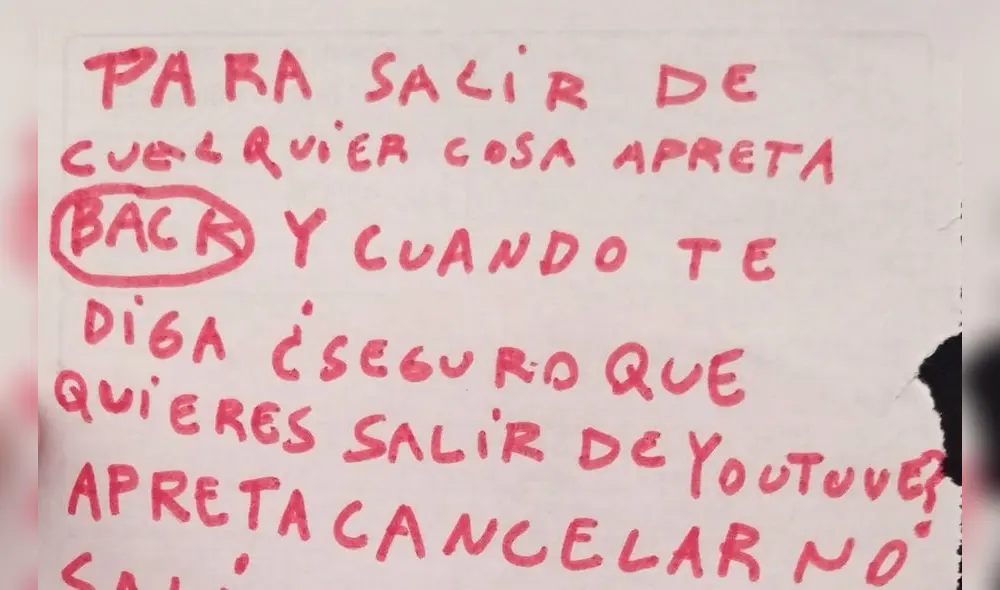 PARA SALIR DE
CUALQUIER COSA APRETA
BACK Y CUANDO TE
DIGA ¿SEGURO QUE
QUIERES SALIR DE YOUTUVE?
APRETA CANCELAR NO